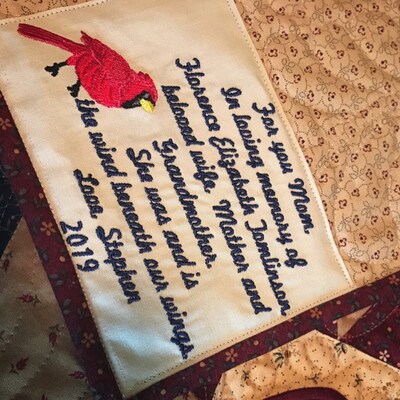 For you Mom
In loving memory of
Florence Elizabeth Tomlinson
beloved wife, Mother and
Grandmother.
She was and is
the wind beneath our wings.
Love Stephen
2019